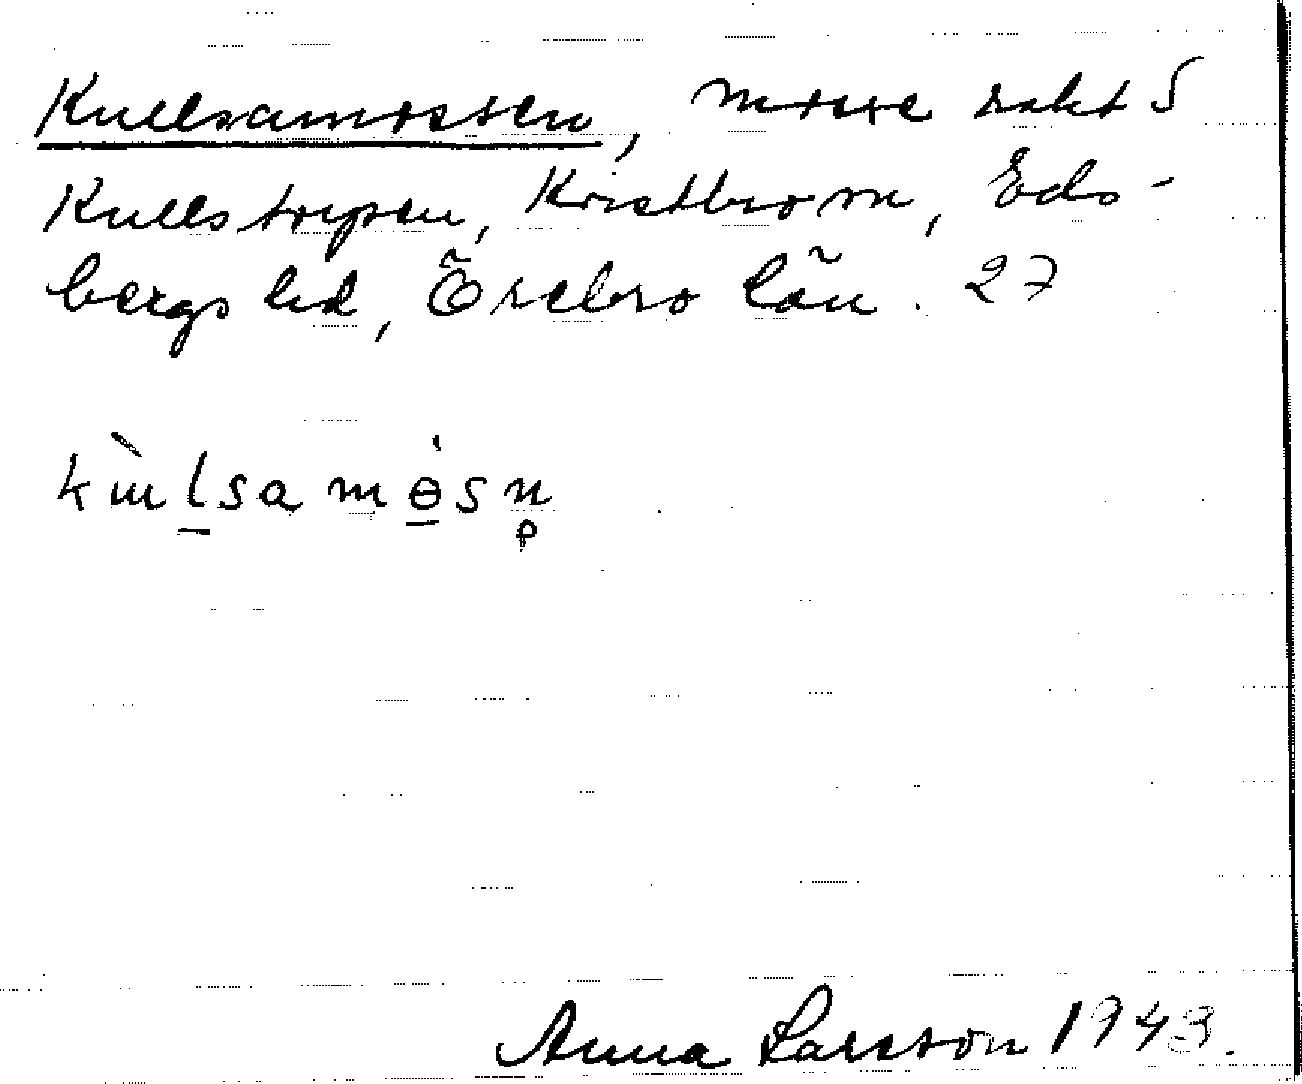 Kullsamossen, mosse rakt S
Kullstorpen, Kristbrom, Eds-
bergs hd, Örebro län. 27
kulsamosn
Anna Larsson 1943.